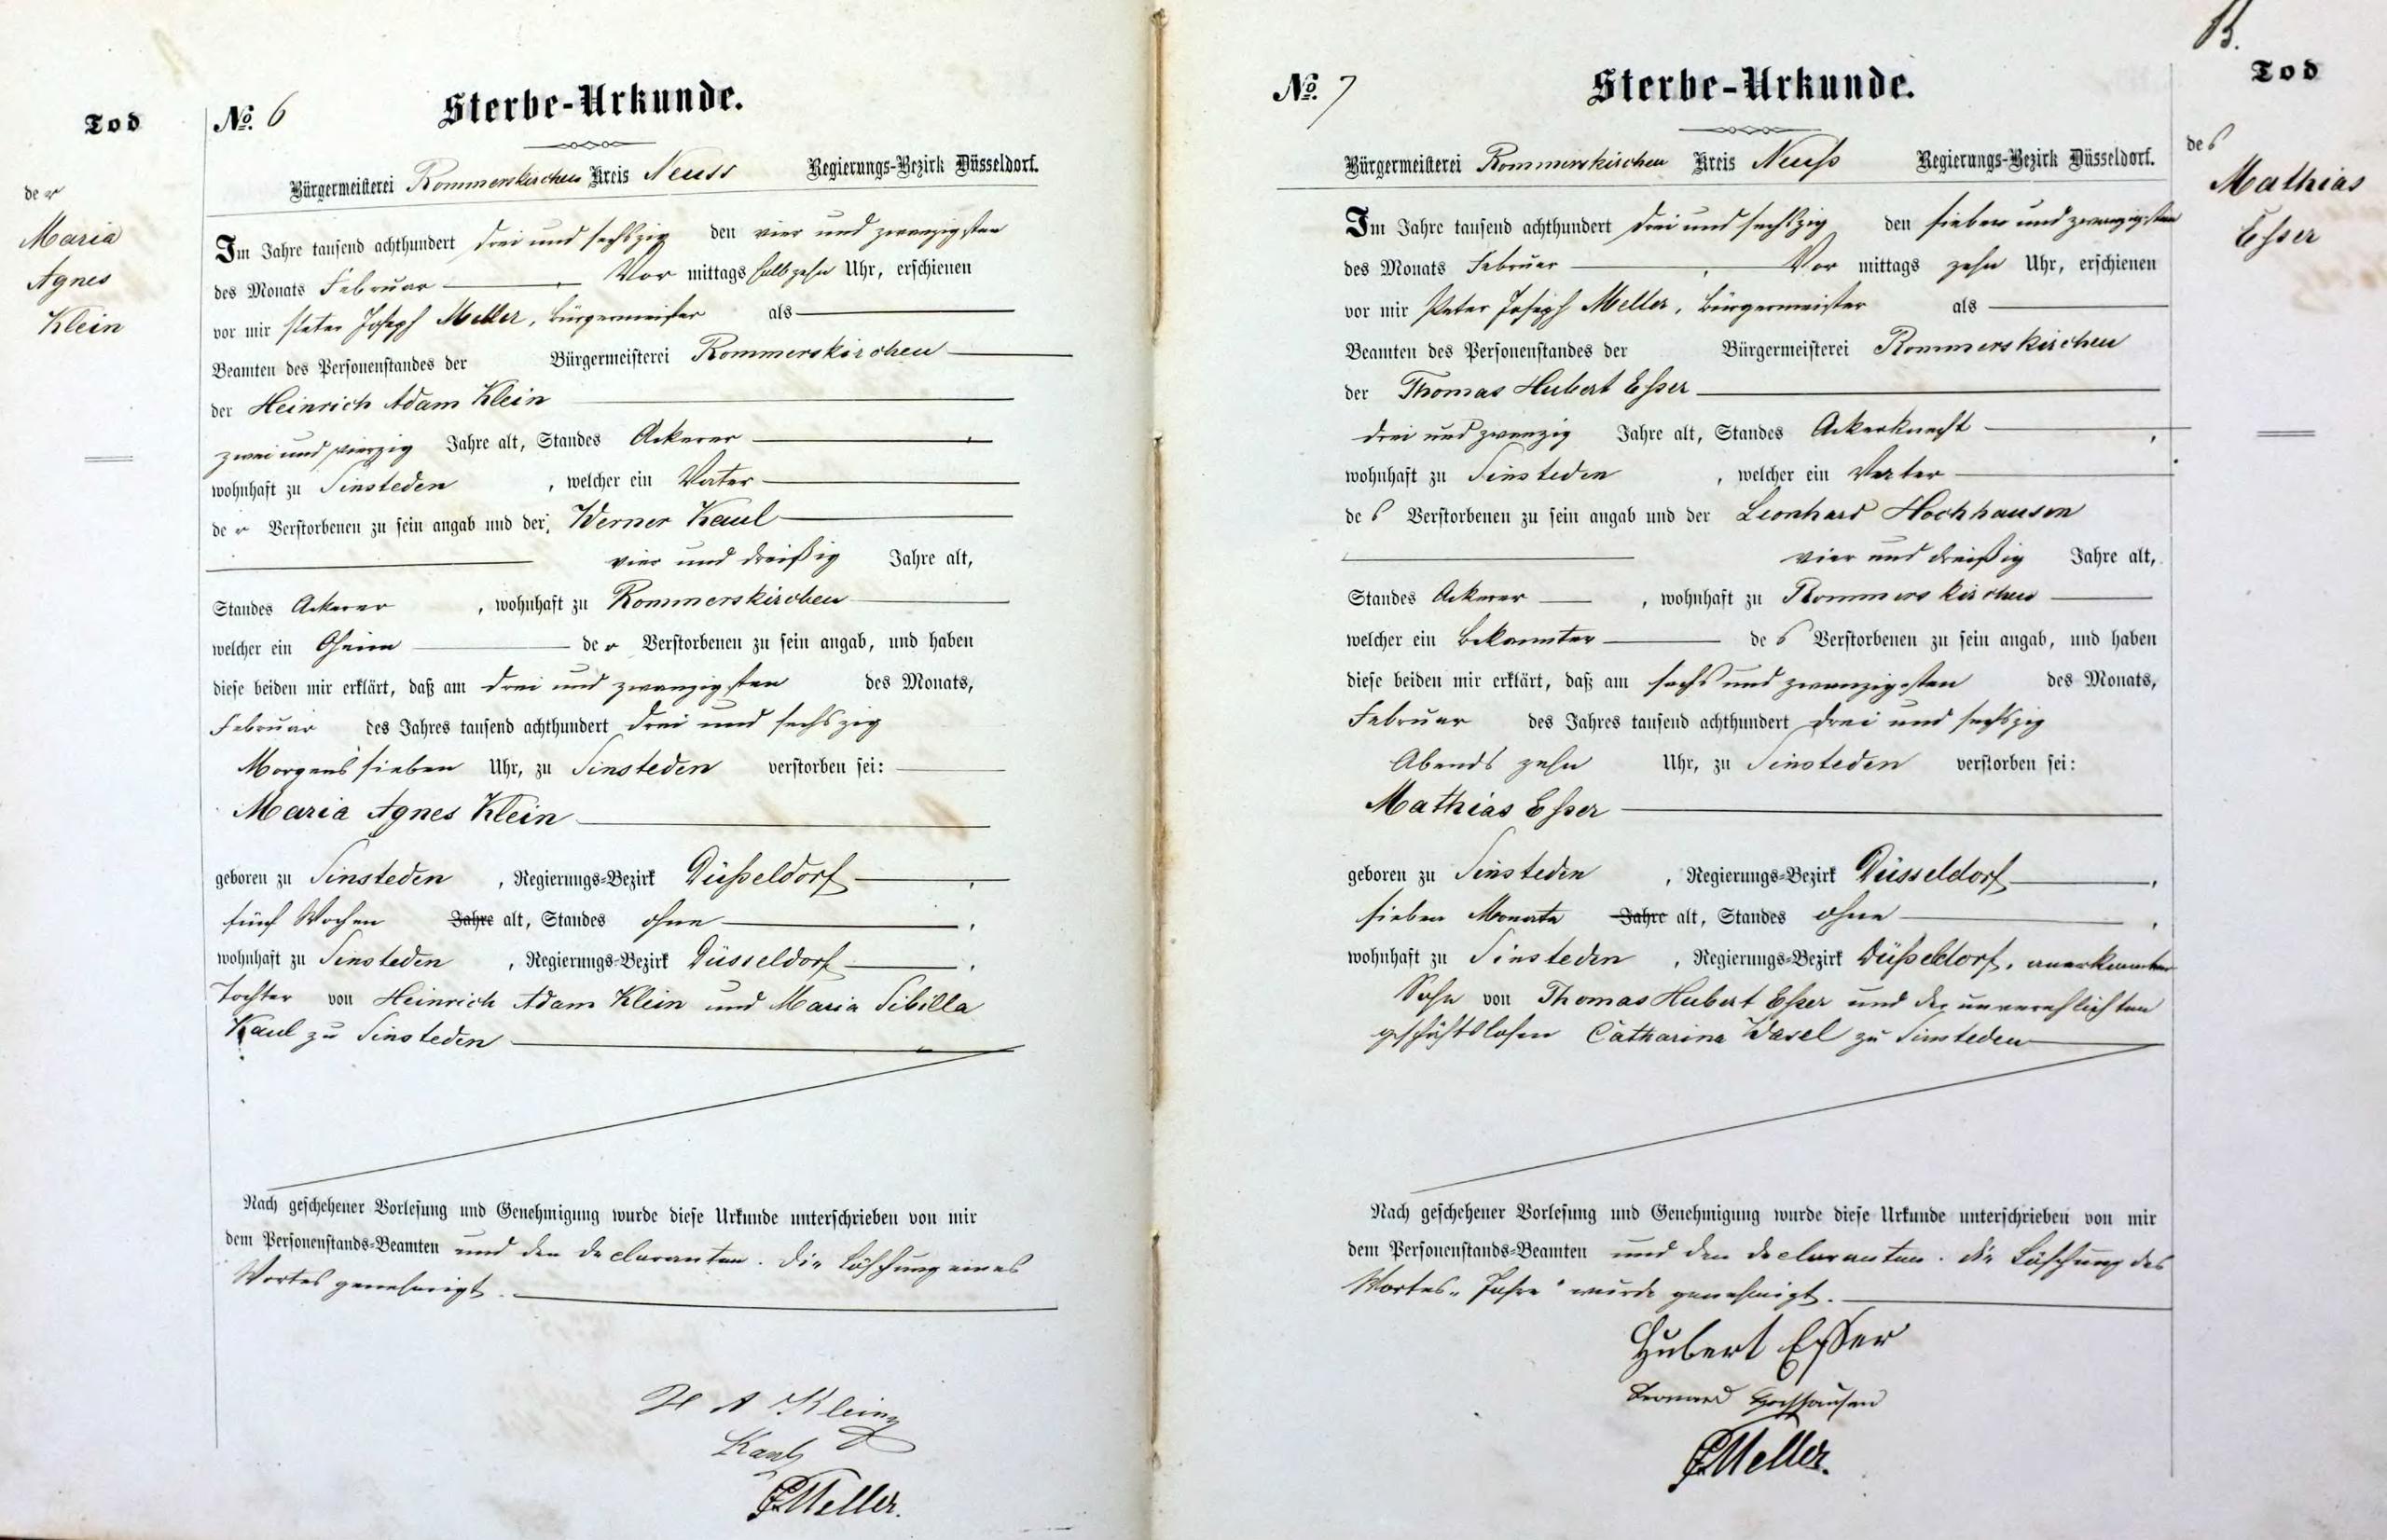 Tod
der
Maria
Agnes
Klein
No. 6
Sterbe-Urkunde.
Bürgermeisterei Rommerskirchen Kreis Neuss Regierungs-Bezirk Düsseldorf.
Im Jahre tausend achthundert drei und sechszig den vier und zwanzigsten
des Monats Februar Vor mittags halb zehn Uhr, erschienen
vor mir Peter Joseph Meller, Bürgermeister als
Beamten des Personenstandes der Bürgermeisterei Rommerskirchen
der Heinrich Adam Klein
zwei und vierzig Jahre alt, Standes Ackerer
wohnhaft zu Sinsteden, welcher ein Vater
der Verstorbenen zu sein angab und der Werner Kaul
vier und dreißig Jahre alt,
Standes Ackerer, wohnhaft zu Rommerskirchen
welcher ein Oheim der Verstorbenen zu sein angab, und haben
diese beiden mir erklärt, daß am drei und zwanzigsten des Monats,
Februar des Jahres tausend achthundert drei und sechszig
Morgens sieben Uhr, zu Sinsteden verstorben sei:
Maria Agnes Klein
geboren zu Sinsteden, Regierungs-Bezirk Düßeldorf,
fünf Wochen Jahre alt, Standes ohne,
wohnhaft zu Sinsteden, Regierungs-Bezirk Düsseldorf,
Tochter von Heinrich Adam Klein und Maria Sibilla
Kaul zu Sinsteden
Nach geschehener Vorlesung und Genehmigung wurde diese Urkunde unterschrieben von mir
dem Personenstands-Beamten und den Declaranten. Die Löschung eines
Wortes genehmigt.
H A Klein
Kaul
PJMeller.
13.
Tod
des
Mathias
Eßer
No. 7
Sterbe-Urkunde.
Bürgermeisterei Rommerskirchen Kreis Neuß Regierungs-Bezirk Düsseldorf.
Im Jahre tausend achthundert drei und sechszig den sieben und zwanzigsten
des Monats Februar, Vor mittags zehn Uhr, erschienen
vor mir Peter Joseph Meller, Bürgermeister als
Beamten des Personenstandes der Bürgermeisterei Rommerskirchen
der Thomas Hubert Eßer
drei und zwanzig Jahre alt, Standes Ackerknecht,
wohnhaft zu Sinsteden, welcher ein Vater
des Verstorbenen zu sein angab und der Leonhard Hochhausen
vier und dreißig Jahre alt,
Standes Ackerer, wohnhaft zu Rommerskirchen
welcher ein Bekannter des Verstorbenen zu sein angab, und haben
diese beiden mir erklärt, daß am sechs und zwanzigsten des Monats,
Februar des Jahres tausend achthundert drei und sechszig
Abends zehn Uhr, zu Sinsteden verstorben sei:
Mathias Eßer
geboren zu Sinsteden, Regierungs-Bezirk Düsseldorf,
sieben Monate Jahre alt, Standes ohne,
wohnhaft zu Sinsteden, Regierungs-Bezirk Düßeldorf, anerkannter
Sohn von Thomas Hubert Eßer und der unverehlichten
geschäftslosen Catharina Wasel zu Sinsteden
Nach geschehener Vorlesung und Genehmigung wurde diese Urkunde unterschrieben von mir
dem Personenstands-Beamten und den Declaranten. Die Löschung des
Wortes "Jahre" wurde genehmigt.
Hubert Esser
Leonard Hochhausen
PJMeller.